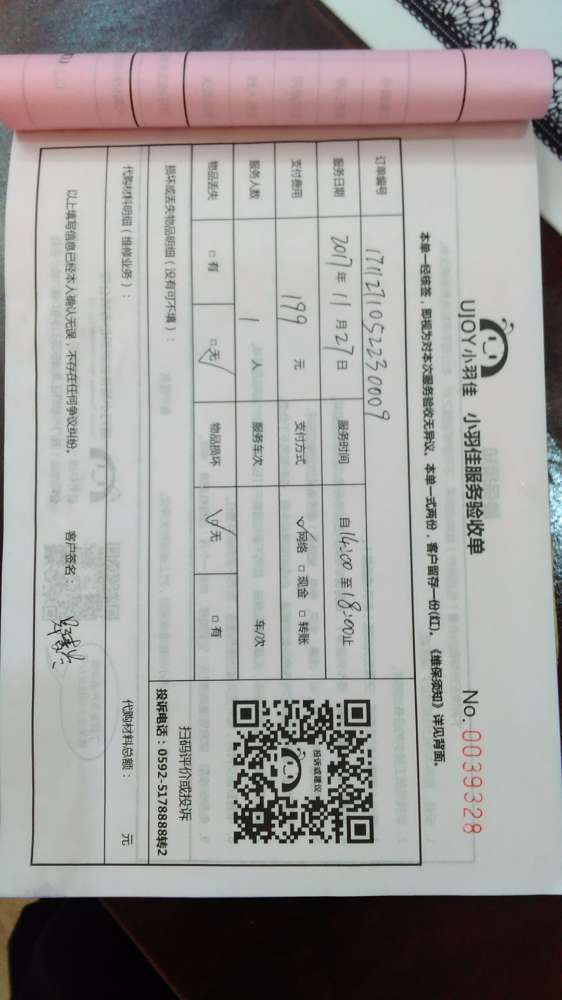 UJOY小羽佳 小羽佳服务验收单
No. 0039328
本单一经核签，即视为对本次服务验收无异议。本单一式两份，客户留存一份(红)。《维保须知》详见背面。
订单编号 171127105223 0009
服务日期 2017年11月27日 服务时间 自14:00至18:00止
支付费用 199 元 支付方式 ☑网络 □现金 □转账
服务人数 1 人 服务车次 车/次
物品丢失 □有 ☑无 物品损坏 ☑无 □有
投诉或建议
扫码评价或投诉
投诉电话：0592-5178888转2
损坏或丢失物品明细（没有可不填）：
代购材料明细（维修业务）： 代购材料总额： 元
以上填写信息已经本人确认无误，不存在任何争议纠纷。 客户签名：